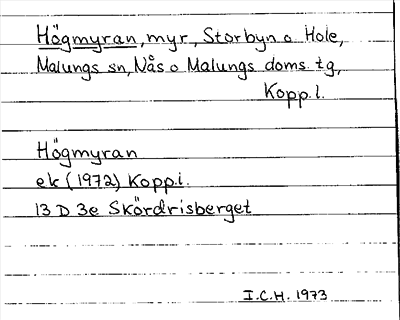 Högmyran, myr, Storbyn o Hole,
Malungs sn, Nås o Malungs doms tg,
Kopp.l.
Högmyran
ek (1972) Kopp.i.
13 D 3e Skördrisberget
I.C.H. 1973